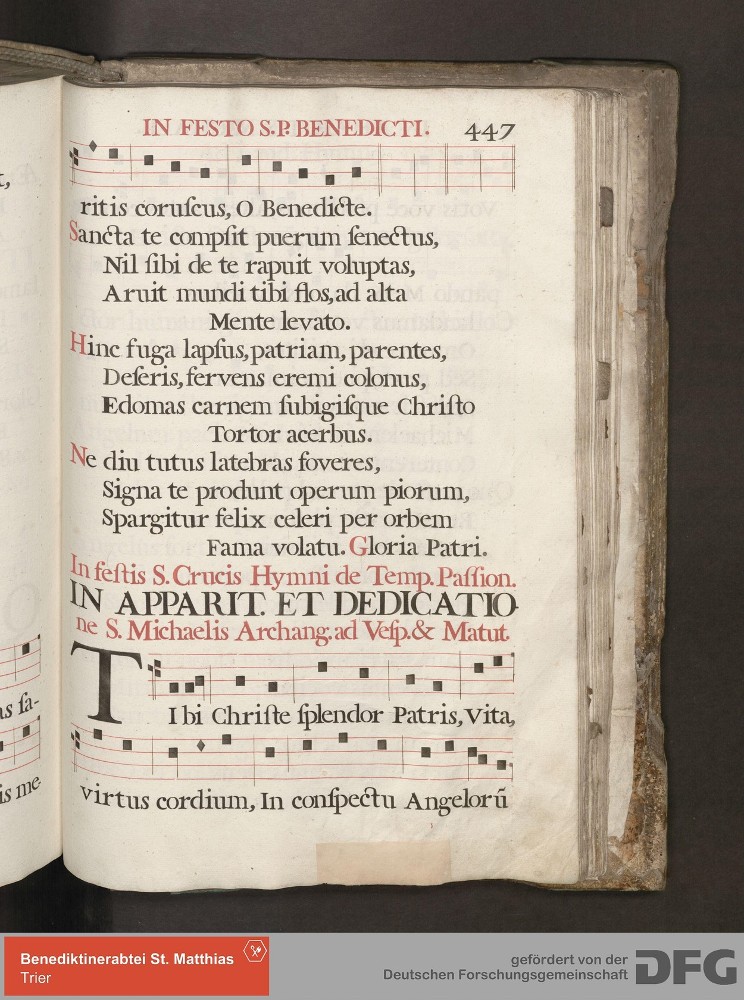 IN FESTO S.P. BENEDICTI. 447
ritis coruſcus, O Benedicte.
Sancta te compſit puerum ſenectus,
Nil ſibi de te rapuit voluptas,
Aruit mundi tibi flos, ad alta
Mente levato.
Hinc fuga lapſus, patriam, parentes,
Deſeris, fervens eremi colonus,
Edomas carnem ſubigiſque Chriſto
Tortor acerbus.
Ne diu tutus latebras foveres,
Signa te produnt operum piorum,
Spargitur felix celeri per orbem
Fama volatu. Gloria Patri.
In feſtis S. Crucis Hymni de Temp. Paſſion.
IN APPARIT. ET DEDICATIO-
ne S. Michaelis Archang. ad Veſp. & Matut.
TIbi Chriſte ſplendor Patris, Vita,
virtus cordium, In conſpectu Angelorũ
as ſa-
is me-
Benediktinerabtei St. Matthias
Trier
gefördert von der
Deutschen Forschungsgemeinschaft
DFG